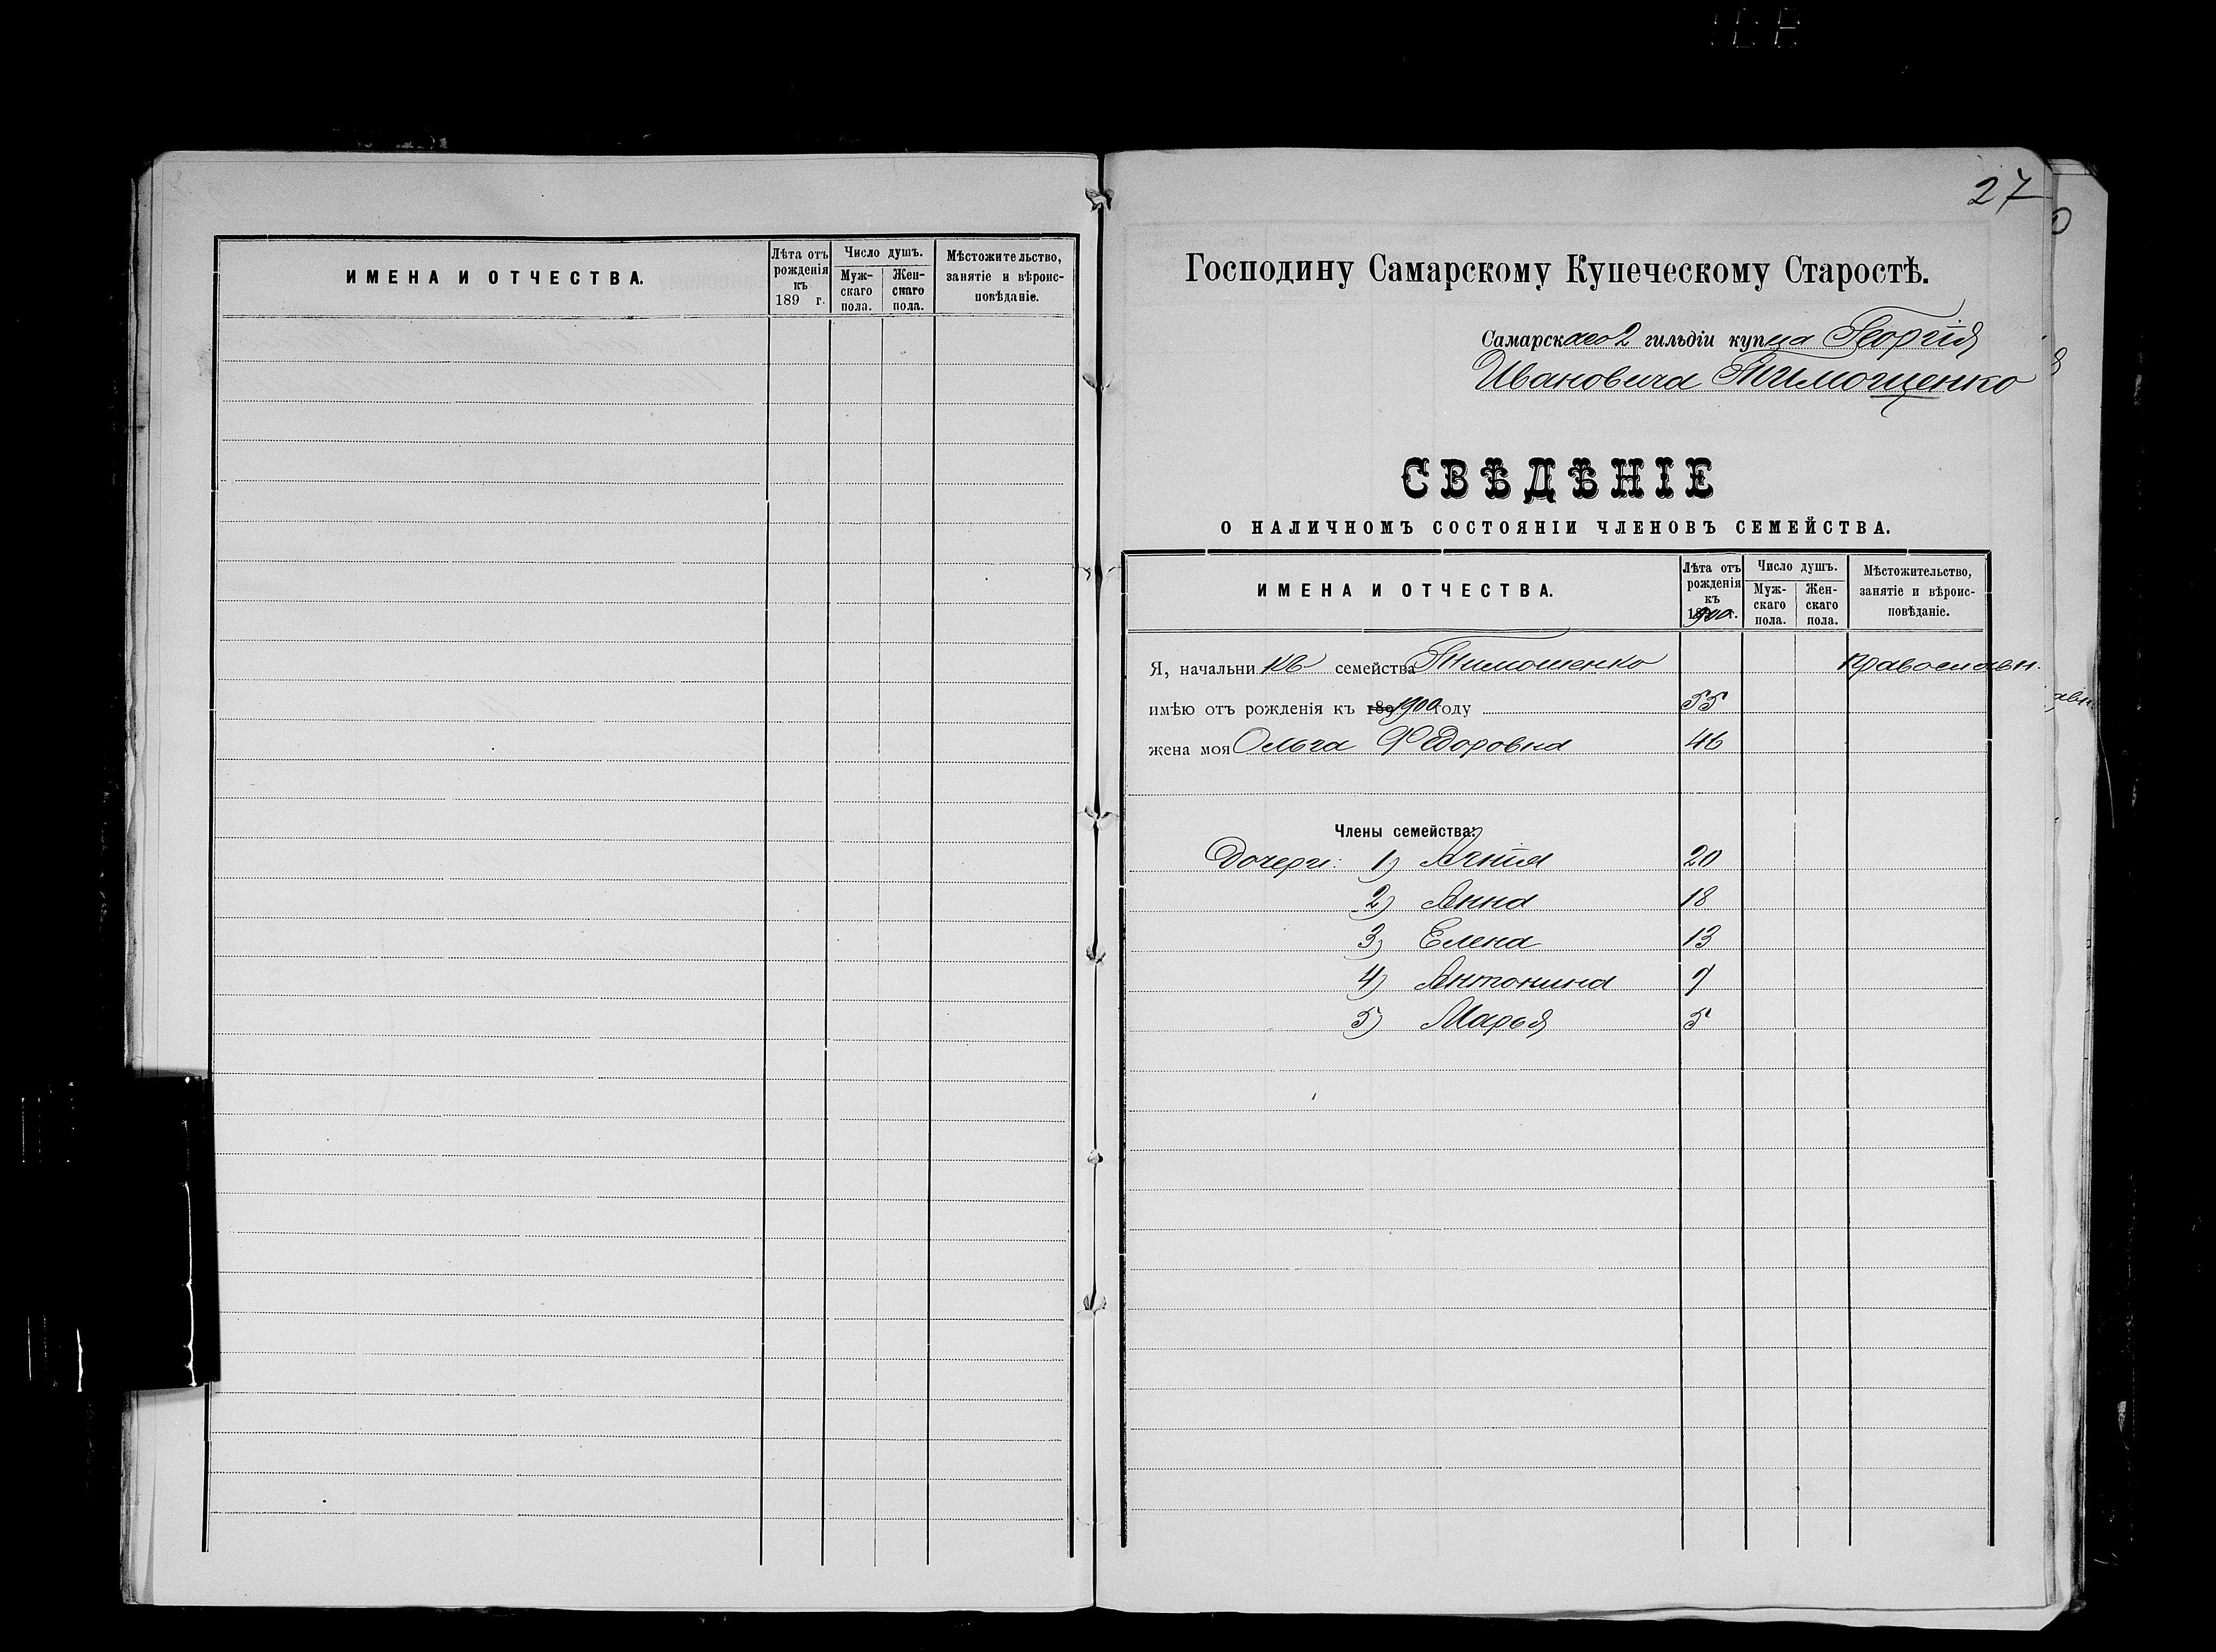 ИМЕНА И ОТЧЕСТВА.
Лѣта отъ рожденія къ 189 г.
Число душъ.
Муж-скаго пола.
Жен-скаго пола.
Мѣстожительство, занятіе и вѣроис-повѣданіе.
27
Господину Самарскому Купеческому Старостѣ.
Самарскаго 2 гильдіи купца Георгія
Ивановича Тимошенко
СВѢДѢНІЕ
О НАЛИЧНОМЪ СОСТОЯНІИ ЧЛЕНОВЪ СЕМЕЙСТВА.
ИМЕНА И ОТЧЕСТВА.
Лѣта отъ рожденія къ 1900 г.
Число душъ.
Муж-скаго пола.
Жен-скаго пола.
Мѣстожительство, занятіе и вѣроис-повѣданіе.
Я, начальникъ семейства Тимошенко Православн.
имѣю отъ рожденія къ 1900 году 55
жена моя Ольга Федоровна 46
Члены семейства:
Дочери: 1) Агнія 20
2) Анна 18
3) Елена 13
4) Антонина
5) Марья 5